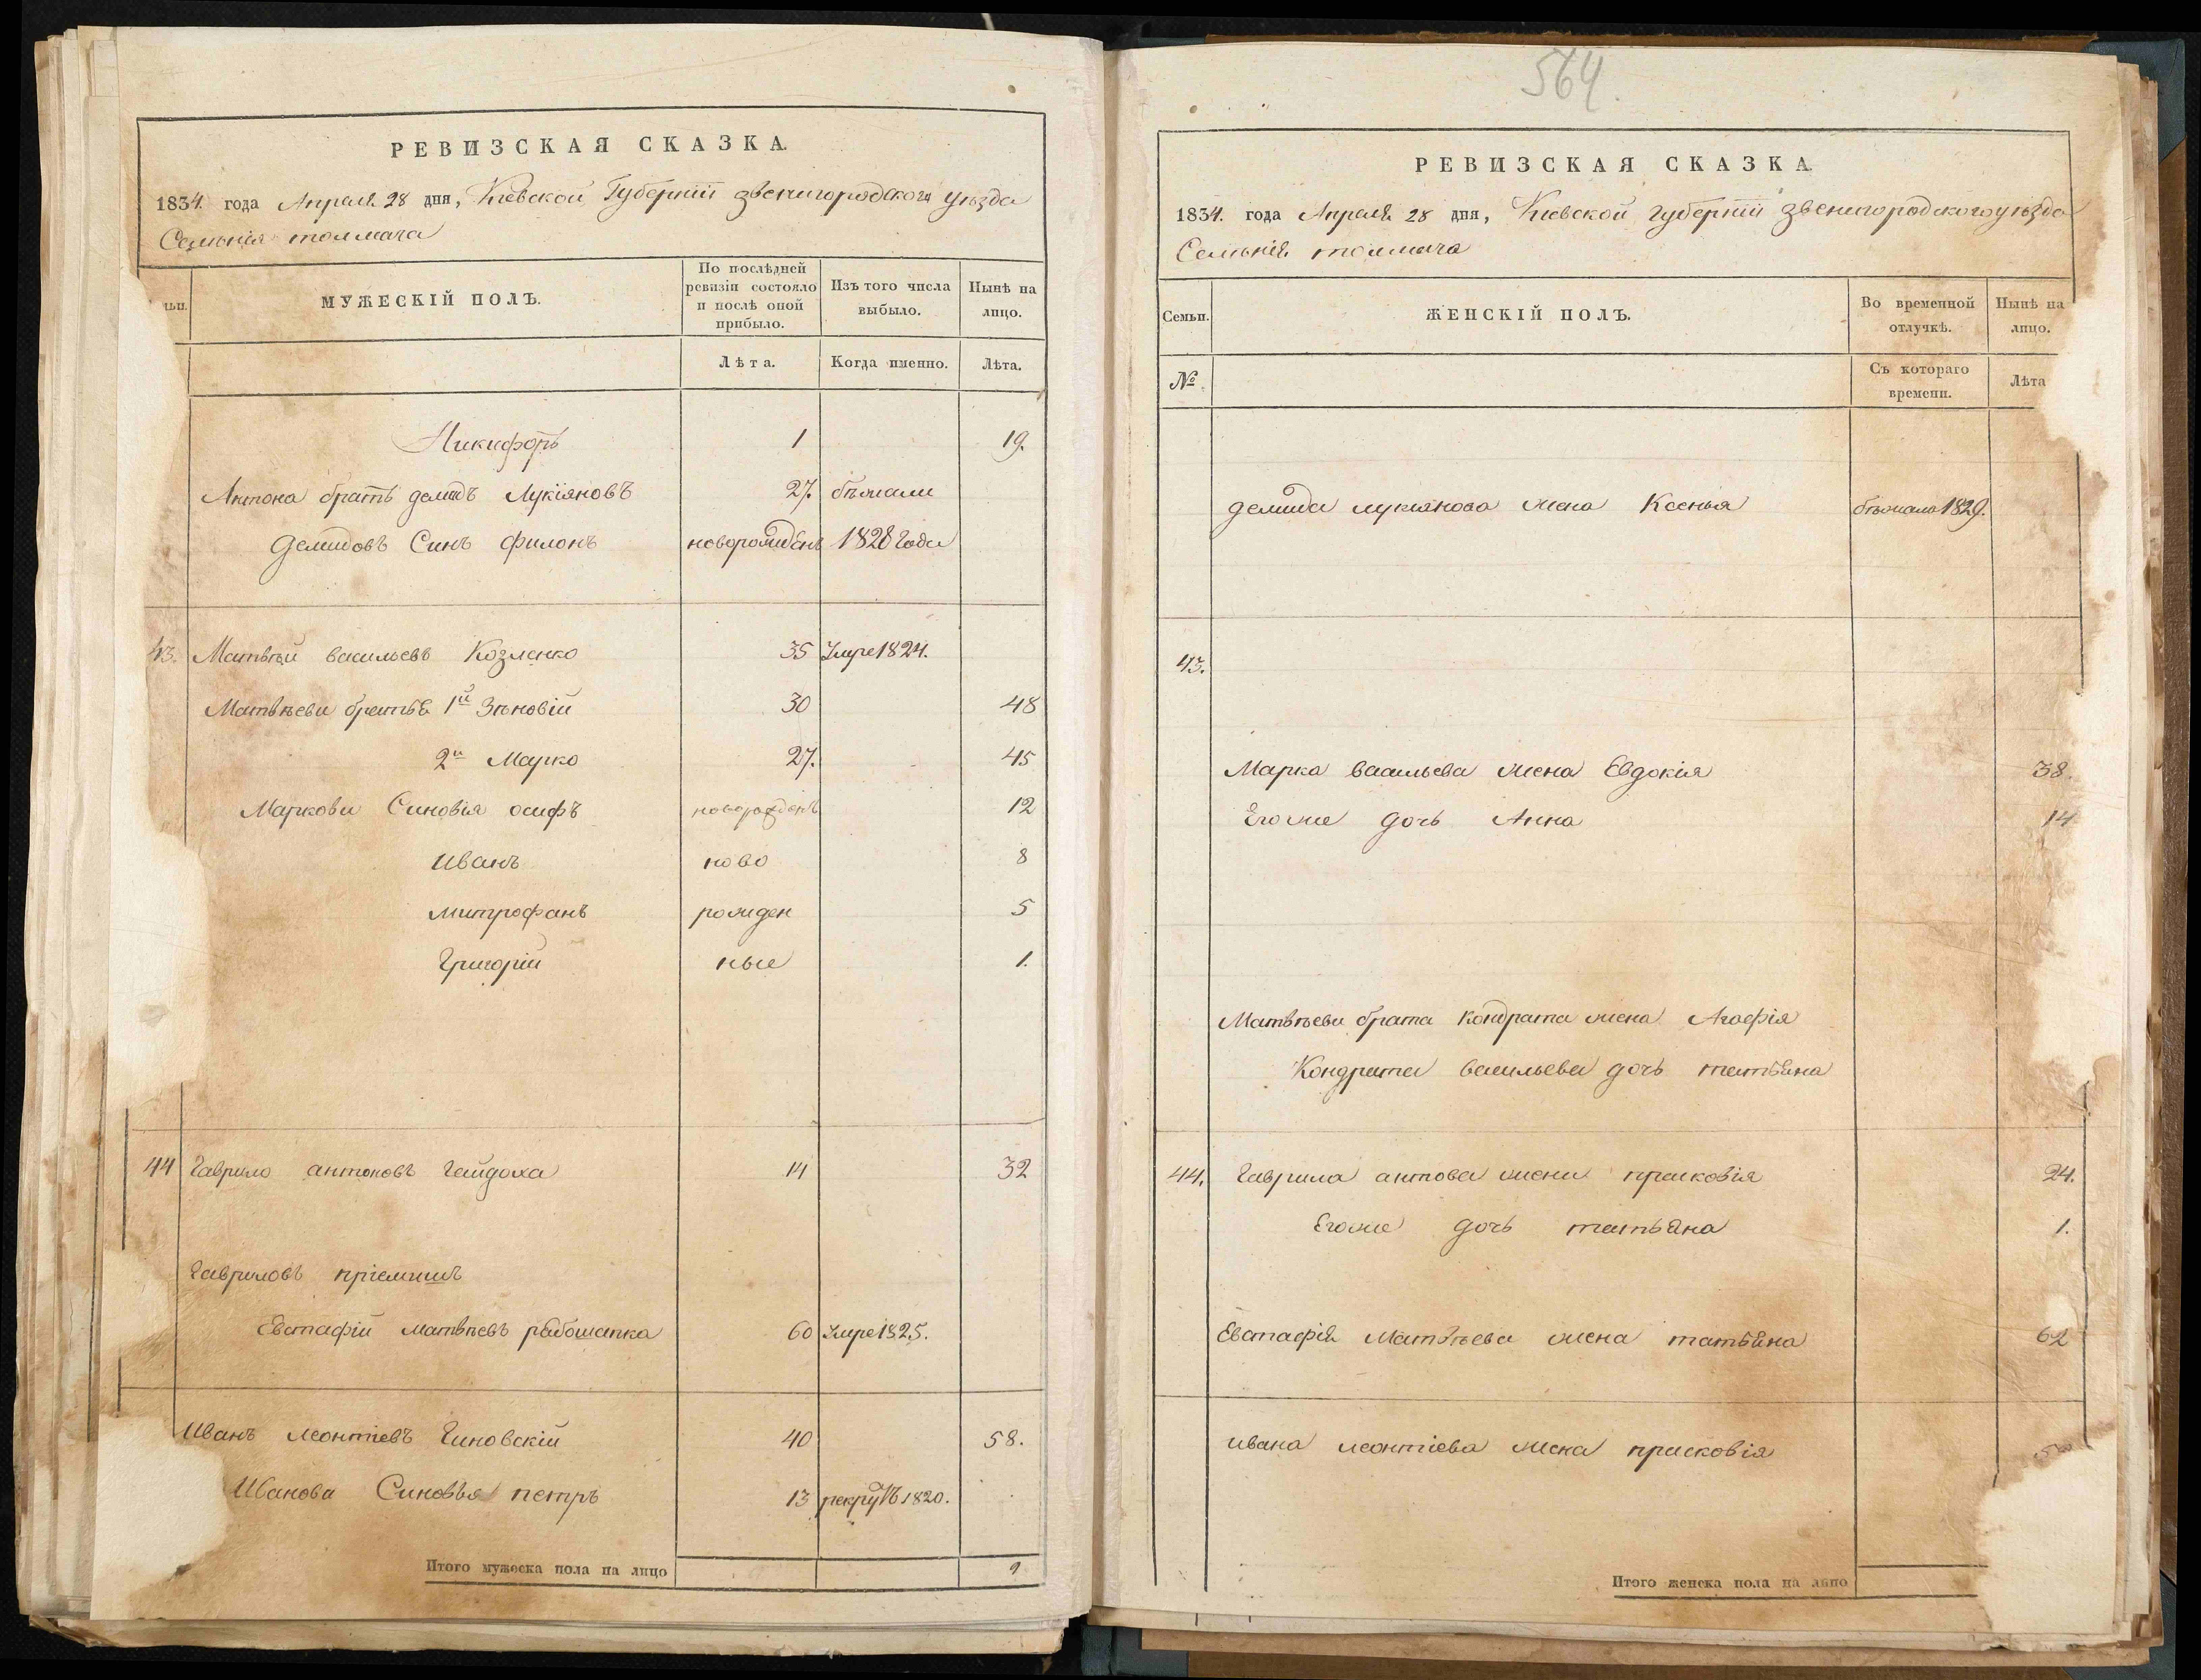 РЕВИЗСКАЯ СКАЗКА.
1834. года Апреля 28 дня, Киевской Губернїи звенигородского уѣзда
Селенїя толмача
МУЖЕСКІЙ ПОЛЪ.
По послѣдней ревизіи состояло и послѣ оной прибыло.
Изъ того числа выбыло.
Нынѣ на лицо.
Лѣта.
Когда именно.
Лѣта.
Никифоръ 1 19.
Антона братъ демидъ Лукїяновъ 27. бѣжали
демидовъ Синъ филонъ новорожденъ 1828 года
43. Матвѣй васильевъ Козленко 35 Умре 1824.
Матвѣеви братья 1й Зѣновїй 30 48
2й Марко 27. 45
Маркови Синовїя осифъ новорожденъ 12
Иванъ ново 8
митрофанъ рожден 5
Григорїй ные 1.
44 Гаврило антоновъ Гайдоха 14 32
Гавриловъ прїемишъ
Евстафїй матвѣевъ рабошапка 60 Умре 1825.
Иванъ леонтїевъ 40 58.
Иванова Синовья петръ 13 рекрутъ 1820.
Итого мужеска пола на лицо 9
564.
РЕВИЗСКАЯ СКАЗКА.
1834. года Апреля 28 дня, Киевской губернїи звенигородского уѣзда
Селенїя толмача
Семьи.
ЖЕНСКІЙ ПОЛЪ.
Во временной отлучкѣ.
Нынѣ на лицо.
№
Съ котораго времени.
Лѣта
демида лукїянова жена Ксенья бѣжала 1829.
43.
Марка васильева жена Евдокїя 38.
Егоже дочь Анна 14
Матвѣеви брата кондрата жена Агафїя
Кондрата васильева дочь татьяна
44. Гаврила антова жена прасковїя 24.
Егоже дочь татьяна 1.
Евстафїя Матвѣева жена татьяна 62
ивана леонтїева жена прасковїя
Итого женска пола на лицо